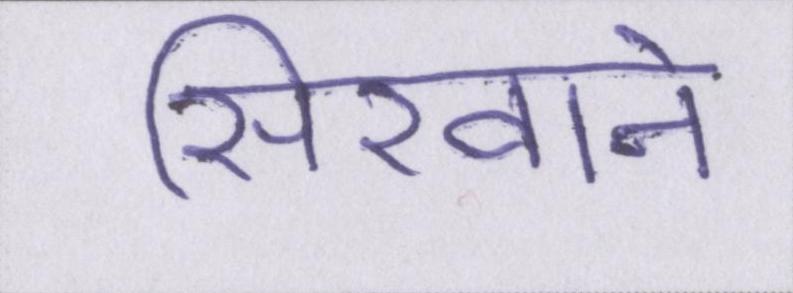 सिखाने